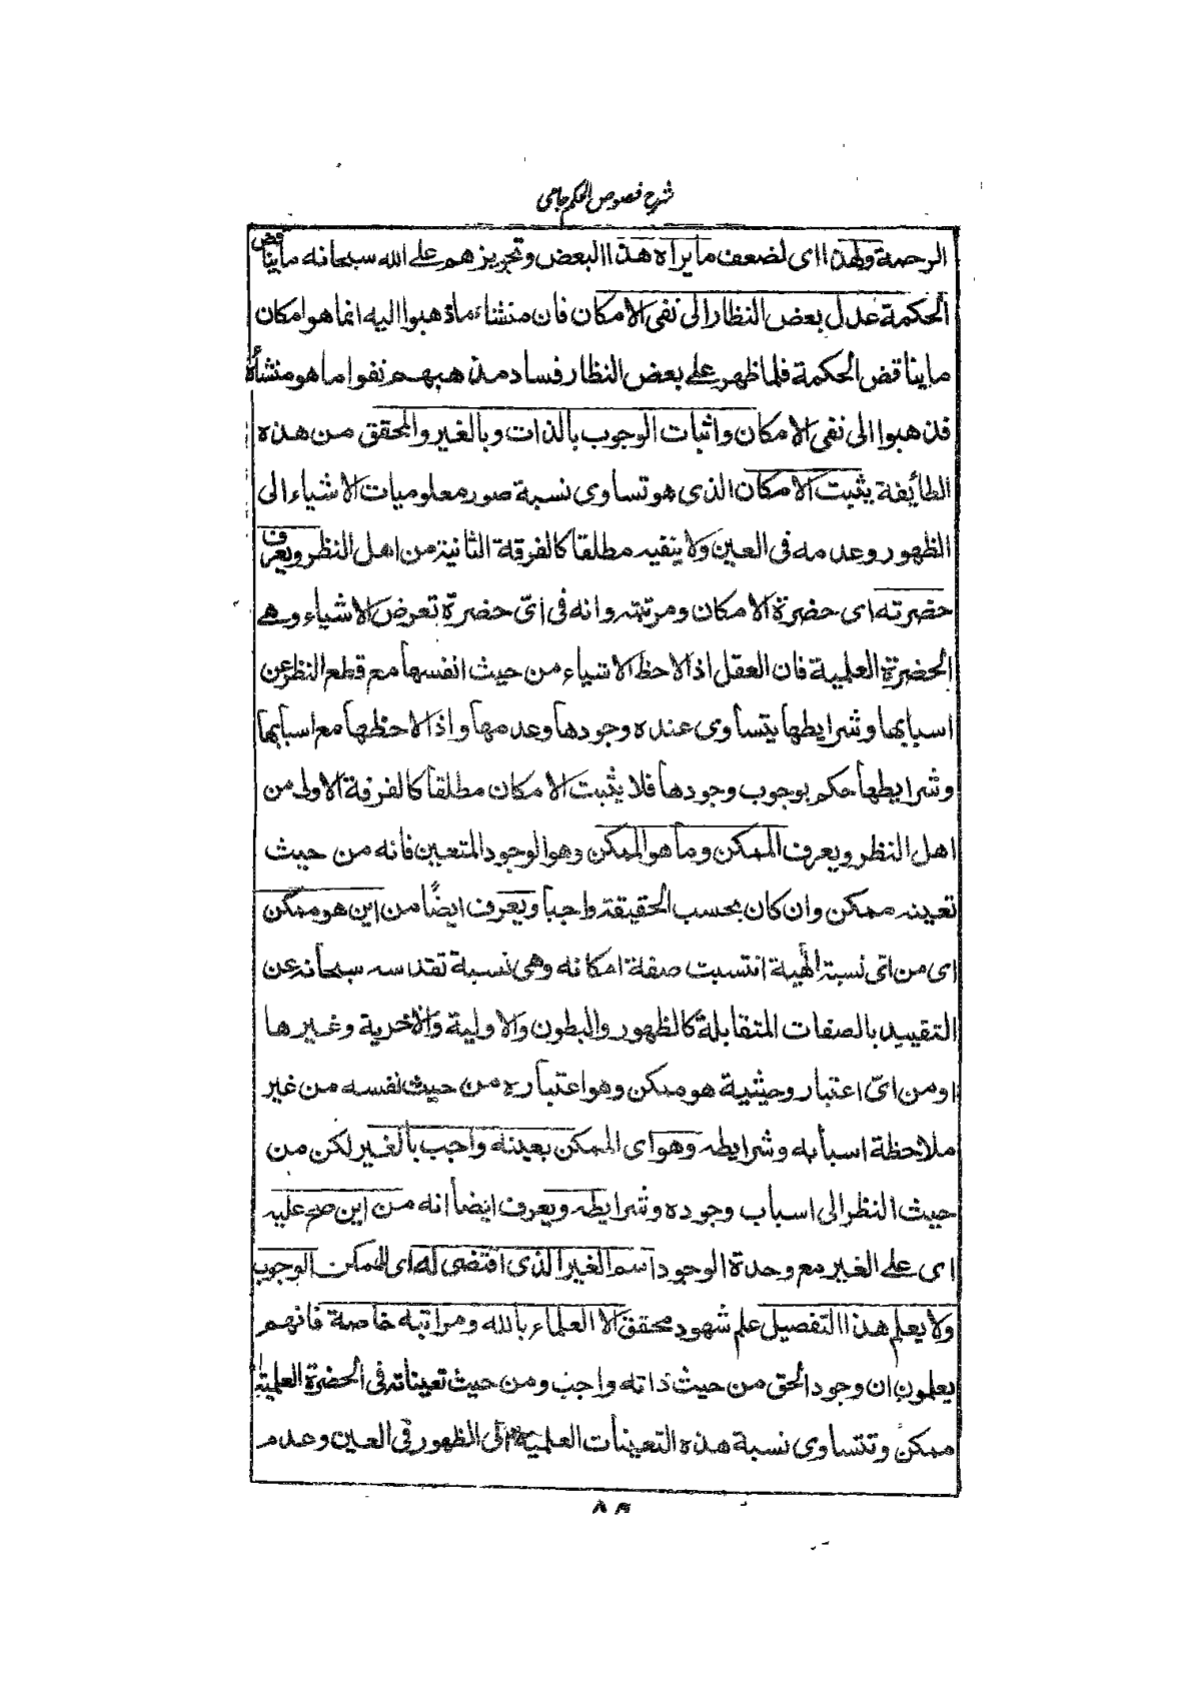 شرح فصوص الحكم جامى
الرحمة ولهذا اى لضعف ما يراه هذا البعض وتجويزهم على الله سبحانه ما يناقض
الحكمة عدل بعض النظار الى نفى الامكان فان منشاء ماذهبوا اليه انما هو امكان
ما يناقض الحكمة فلما ظهر على بعض النظار فساد مذهبهم نفوا ما هو منشأة
فذهبوا الى نفى الامكان واثبات الوجوب بالذات وبالغير والمحقق من هذه
الطائفة يثبت الامكان الذى هو تساوى نسبة صور معلوميات الاشياء الى
الظهور وعدمه فى العين ولا ينفيه مطلقا كالفرقة الثانية من اهل النظر ويعرف
حضرته اى حضرة الامكان ومرتبته وانه فى اىّ حضرة تعرض الاشياء وهى
الحضرة العلمية فان العقل اذا لاحظ الاشياء من حيث انفسها مع قطع النظر عن
اسبابها وشرايطها يتساوى عنده وجودها وعدمها واذا لاحظها مع اسبابها
وشرايطها حكم بوجوب وجودها فلا يثبت الامكان مطلقا كالفرقة الاولى من
اهل النظر ويعرف الممكن وما هو الممكن وهو الوجود المتعين فانه من حيث
تعينه ممكن وان كان بحسب الحقيقة واجبا ويعرف ايضًا من اين هو ممكن
اى من اىّ نسبة الٰهية انتسبت صفة امكانه وهى نسبة تقدسه سبحانه عن
التقييد بالصفات المتقابلة كالظهور والبطون والاولية والاخرية وغيرها
اومن اىّ اعتبار وحيثية هو ممكن وهو اعتباره من حيث نفسه من غير
ملاحظة اسبابه وشرايطه وهو اى الممكن بعينه واجب بالغير لكن من
حيث النظر الى اسباب وجوده وشرايطه ويعرف ايضا انه من اين صح عليه
اى على الغير مع وحدة الوجود اسم الغير الذى اقتضى له اى للممكن الوجوب
ولا يعلم هذا التفصيل علم شهود محقق الا العلماء بالله ومراتبه خاصة فانهم
يعلمون ان وجود الحق من حيث ذاته واجب ومن حيث تعيناته فى الحضرة العلمية
ممكن وتتساوى نسبة هذه التعينات العلمية الى الظهور فى العين وعدم